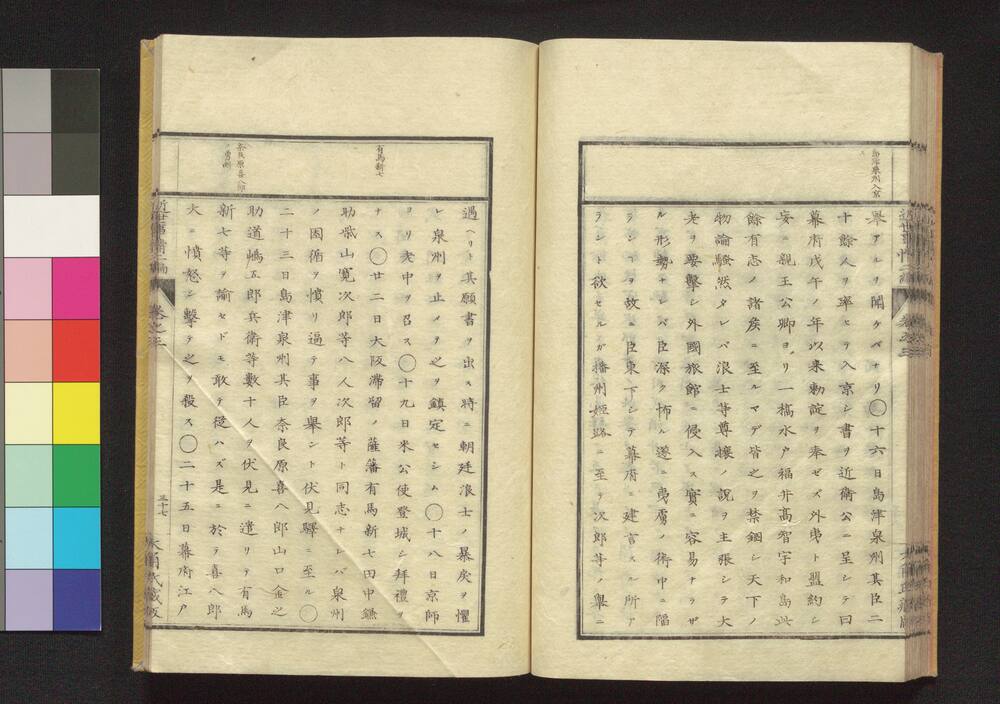 島津泉州入京ス
舉アルヲ聞ケバナリ◯十六日島津泉州其臣二
十餘人ヲ率ヒテ入京シ書ヲ近衛公ニ呈シテ曰
幕府戊午ノ年以来勅諚ヲ奉ゼズ外夷ト盟約シ
妄ニ親王公卿ヨリ一橋水戸福井高智宇和島此
餘有志ノ諸矦ニ至ルマデ皆之ヲ禁錮シ天下ノ
物論騒然タレバ浪士等尊攘ノ説ヲ主張シテ大
老ヲ要撃シ外國旅館ニ侵入ス實ニ容易ナラザ
ル形勢ナレバ臣深ク怖ル遂ニ夷虜ノ術中ニ陥
ランヿヲ故ニ臣東下シテ幕府ニ建言スル所ア
ラント欲セルガ播州姫路ニ至テ次郎等ノ舉ニ
有馬新七
奈良原喜八郎ノ勇剛
過ヘリト其願書ヲ出ス将ニ朝廷浪士ノ暴戻ヲ懼
レ泉州ヲ止メテ之ヲ鎮定セシム◯十八日京師
ヨリ老中ヲ召ス◯十九日米公使登城シ拜禮ヲ
ナス◯廿二日大阪滞留ノ薩藩有馬新七田中鎌
助飛山寛次郎等八人次郎等ト同志ナレバ泉州
ノ因循ヲ憤リ逼テ事ヲ舉ント伏見驛ニ至ル◯
二十三日島津泉州其臣奈良原喜八郎山口金之
助道嶋五郎兵衛等數十人ヲ伏見ニ遣リテ有馬
新七等ヲ諭セドモ敢テ從ハズ是ニ於テ喜八郎
大ニ憤怒シ撃テ之ヲ殺ス◯二十五日幕府江戸
巻之三
三十七